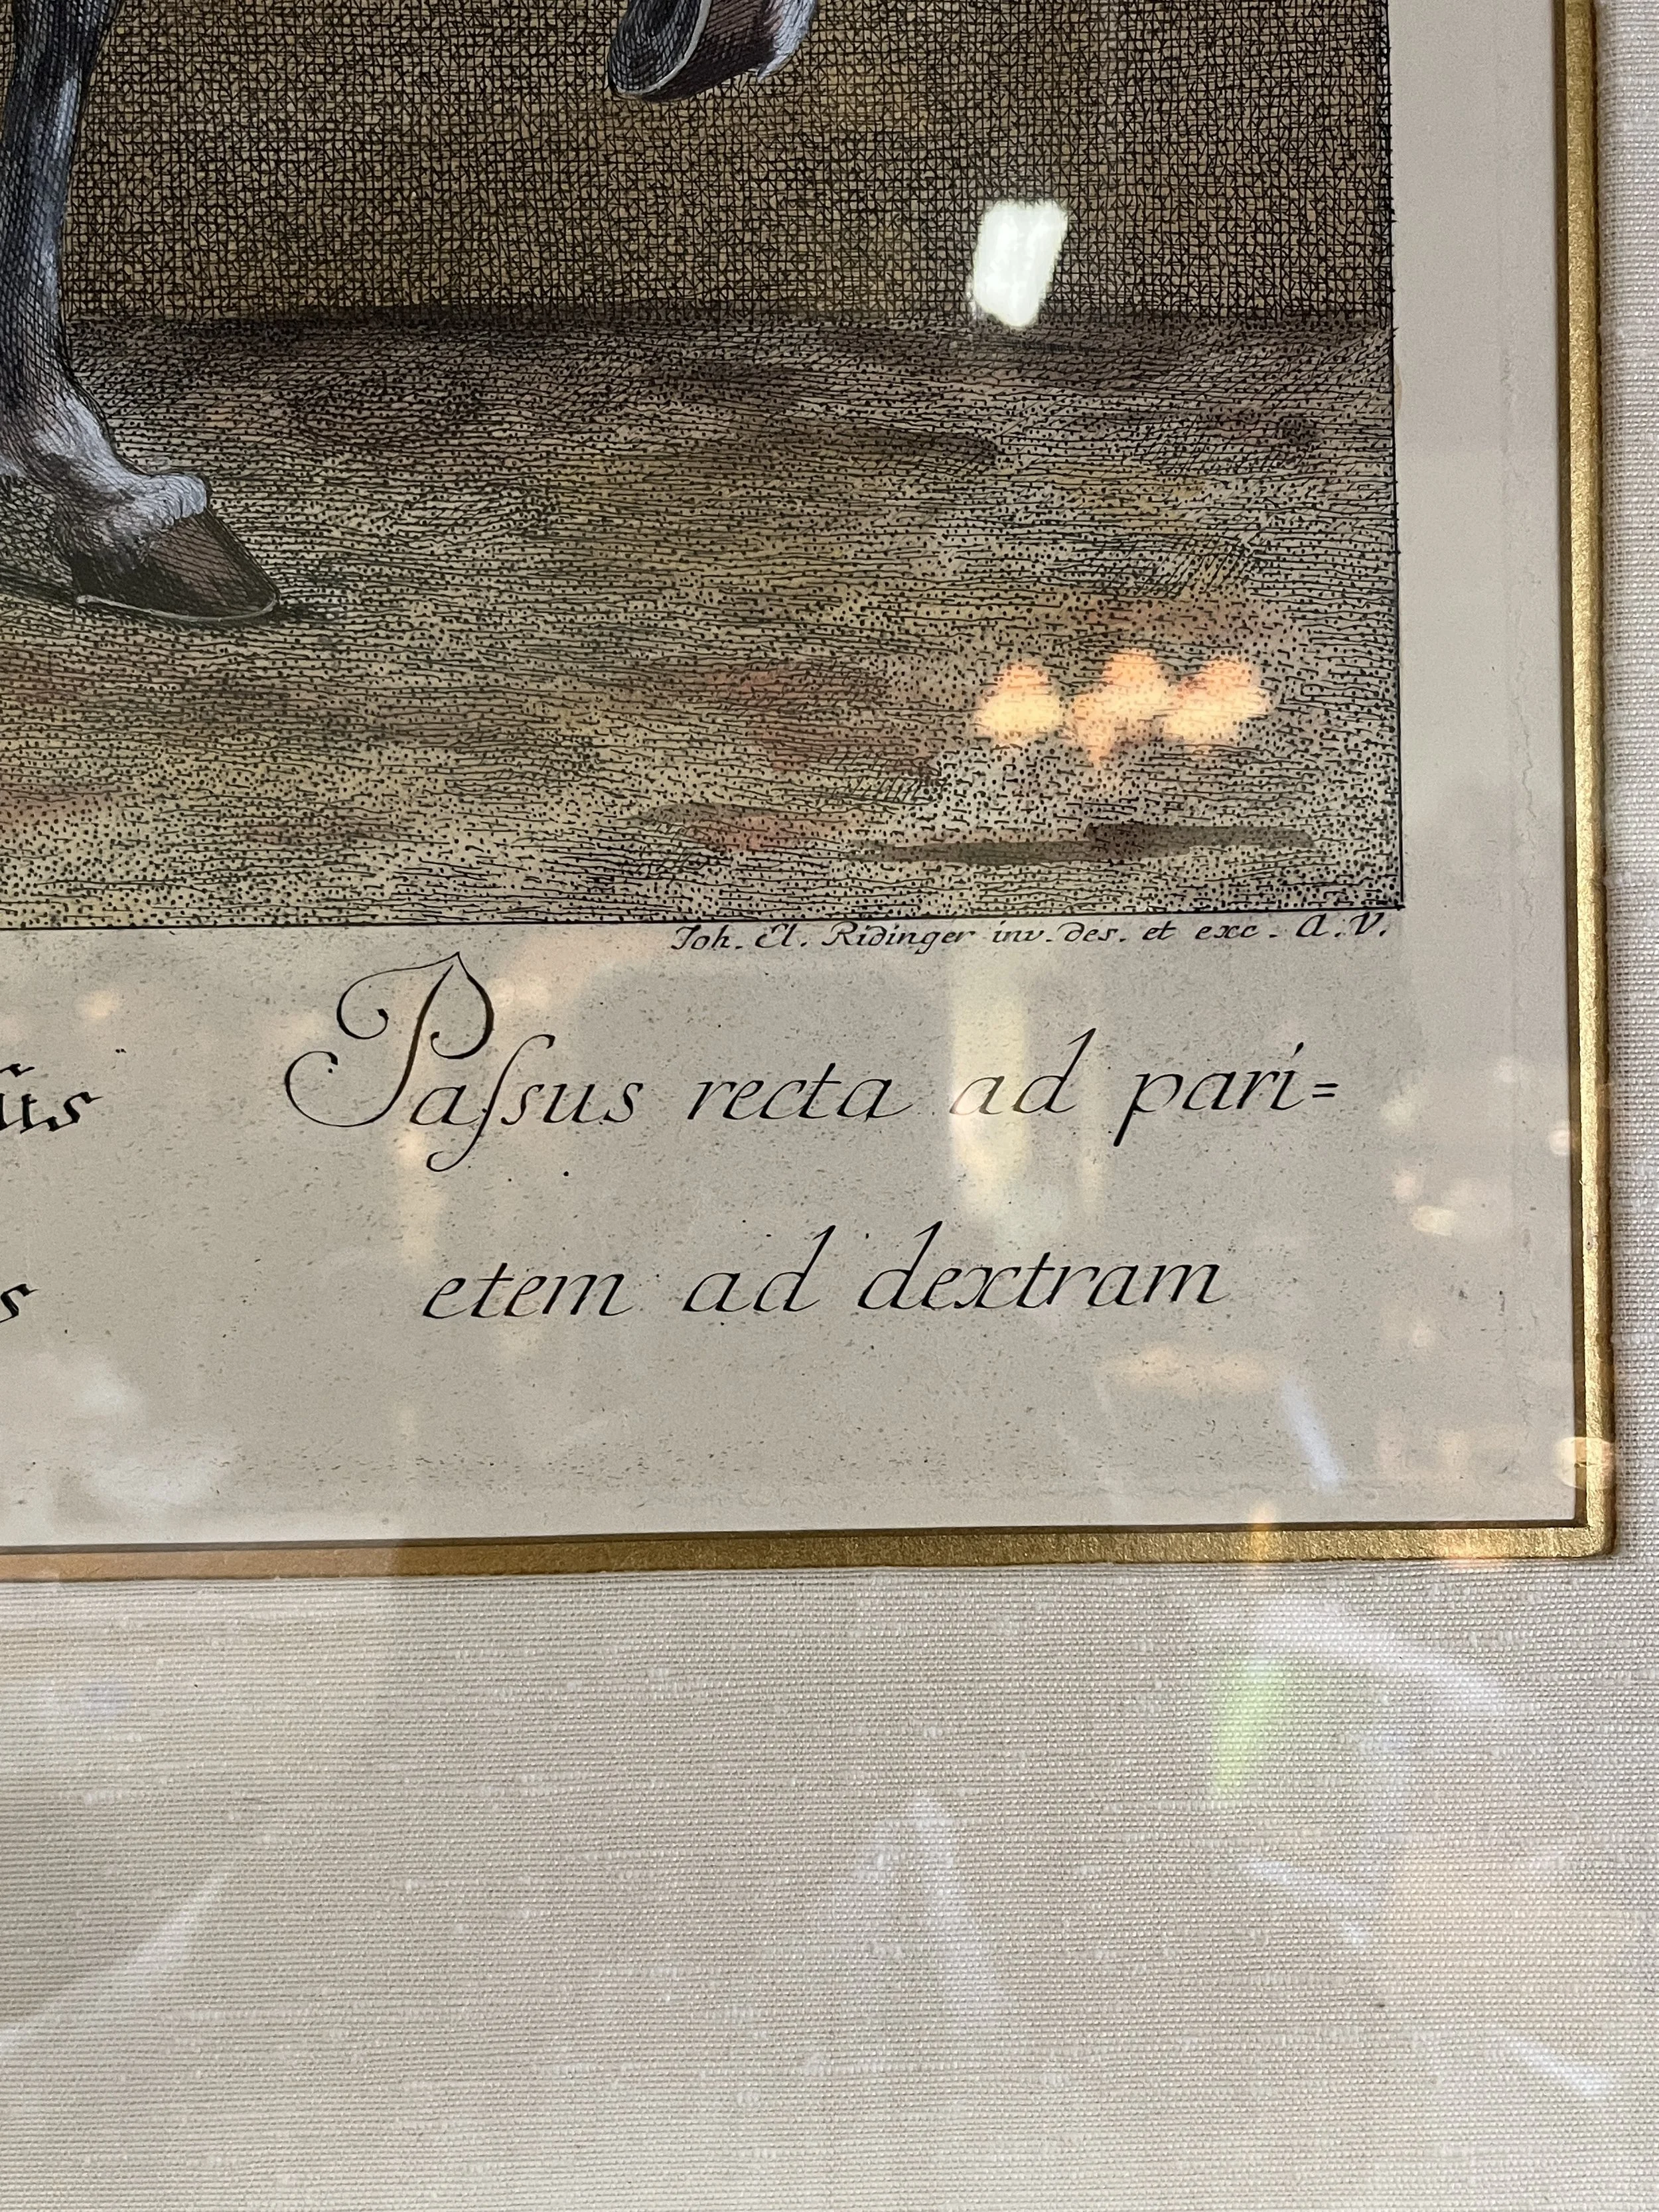 Joh. El. Ridinger inv. des. et exc. A. V.
Paſsus recta ad pari=
etem ad dextram